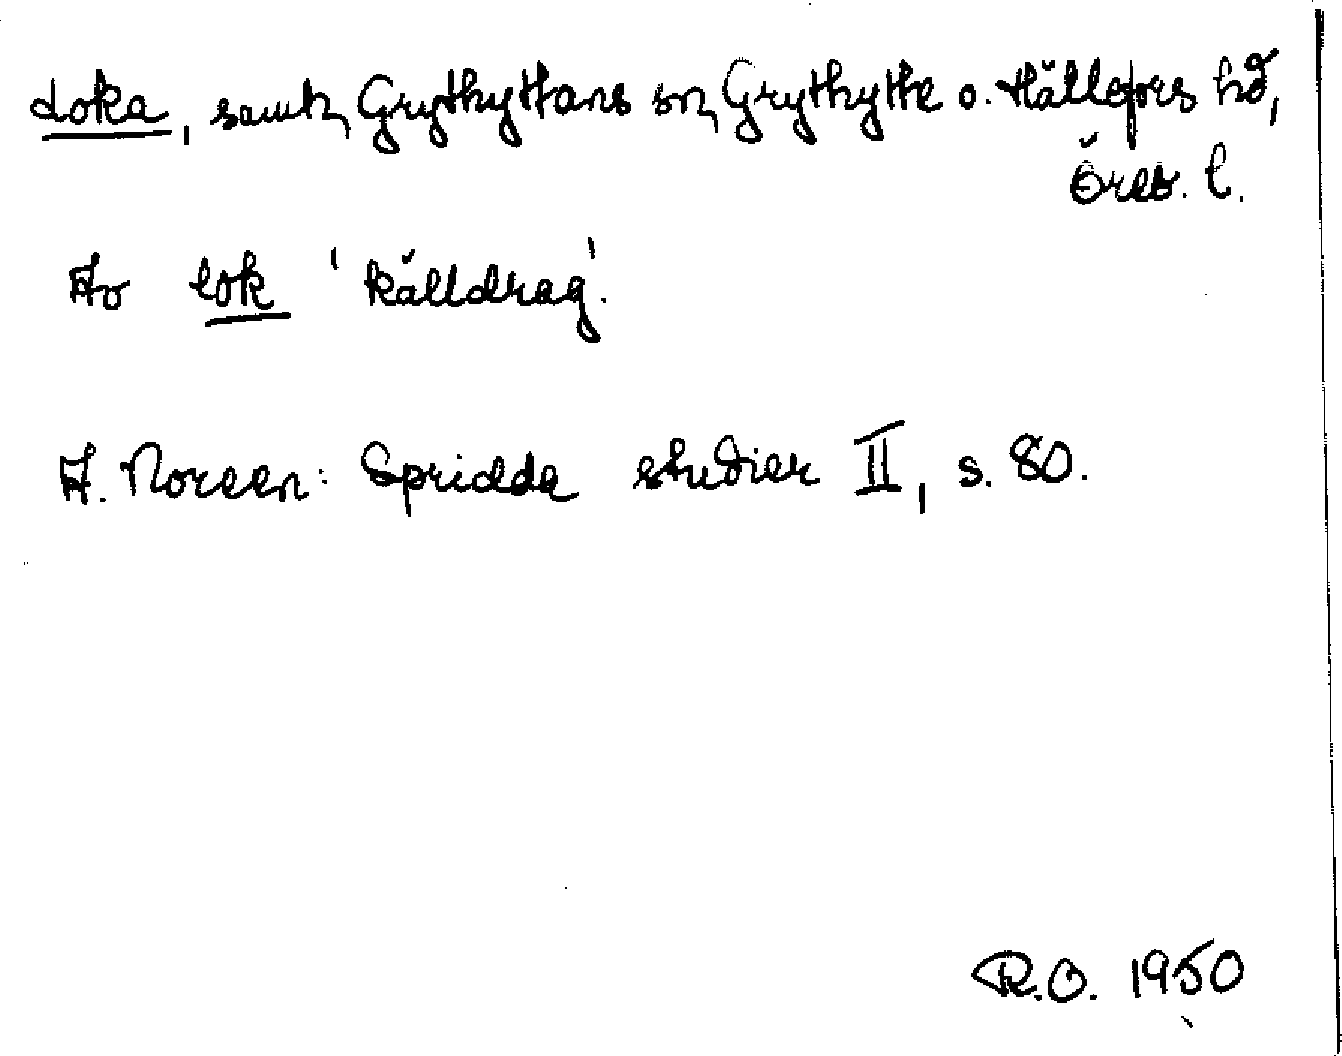 Loka, samt Grythyttans sn, Grythytte o. Hällefors hd,
Öreb. l.
Av lok 'källdrag'.
A. Noreen: Spridda studier II, s. 80.
R.O. 1950